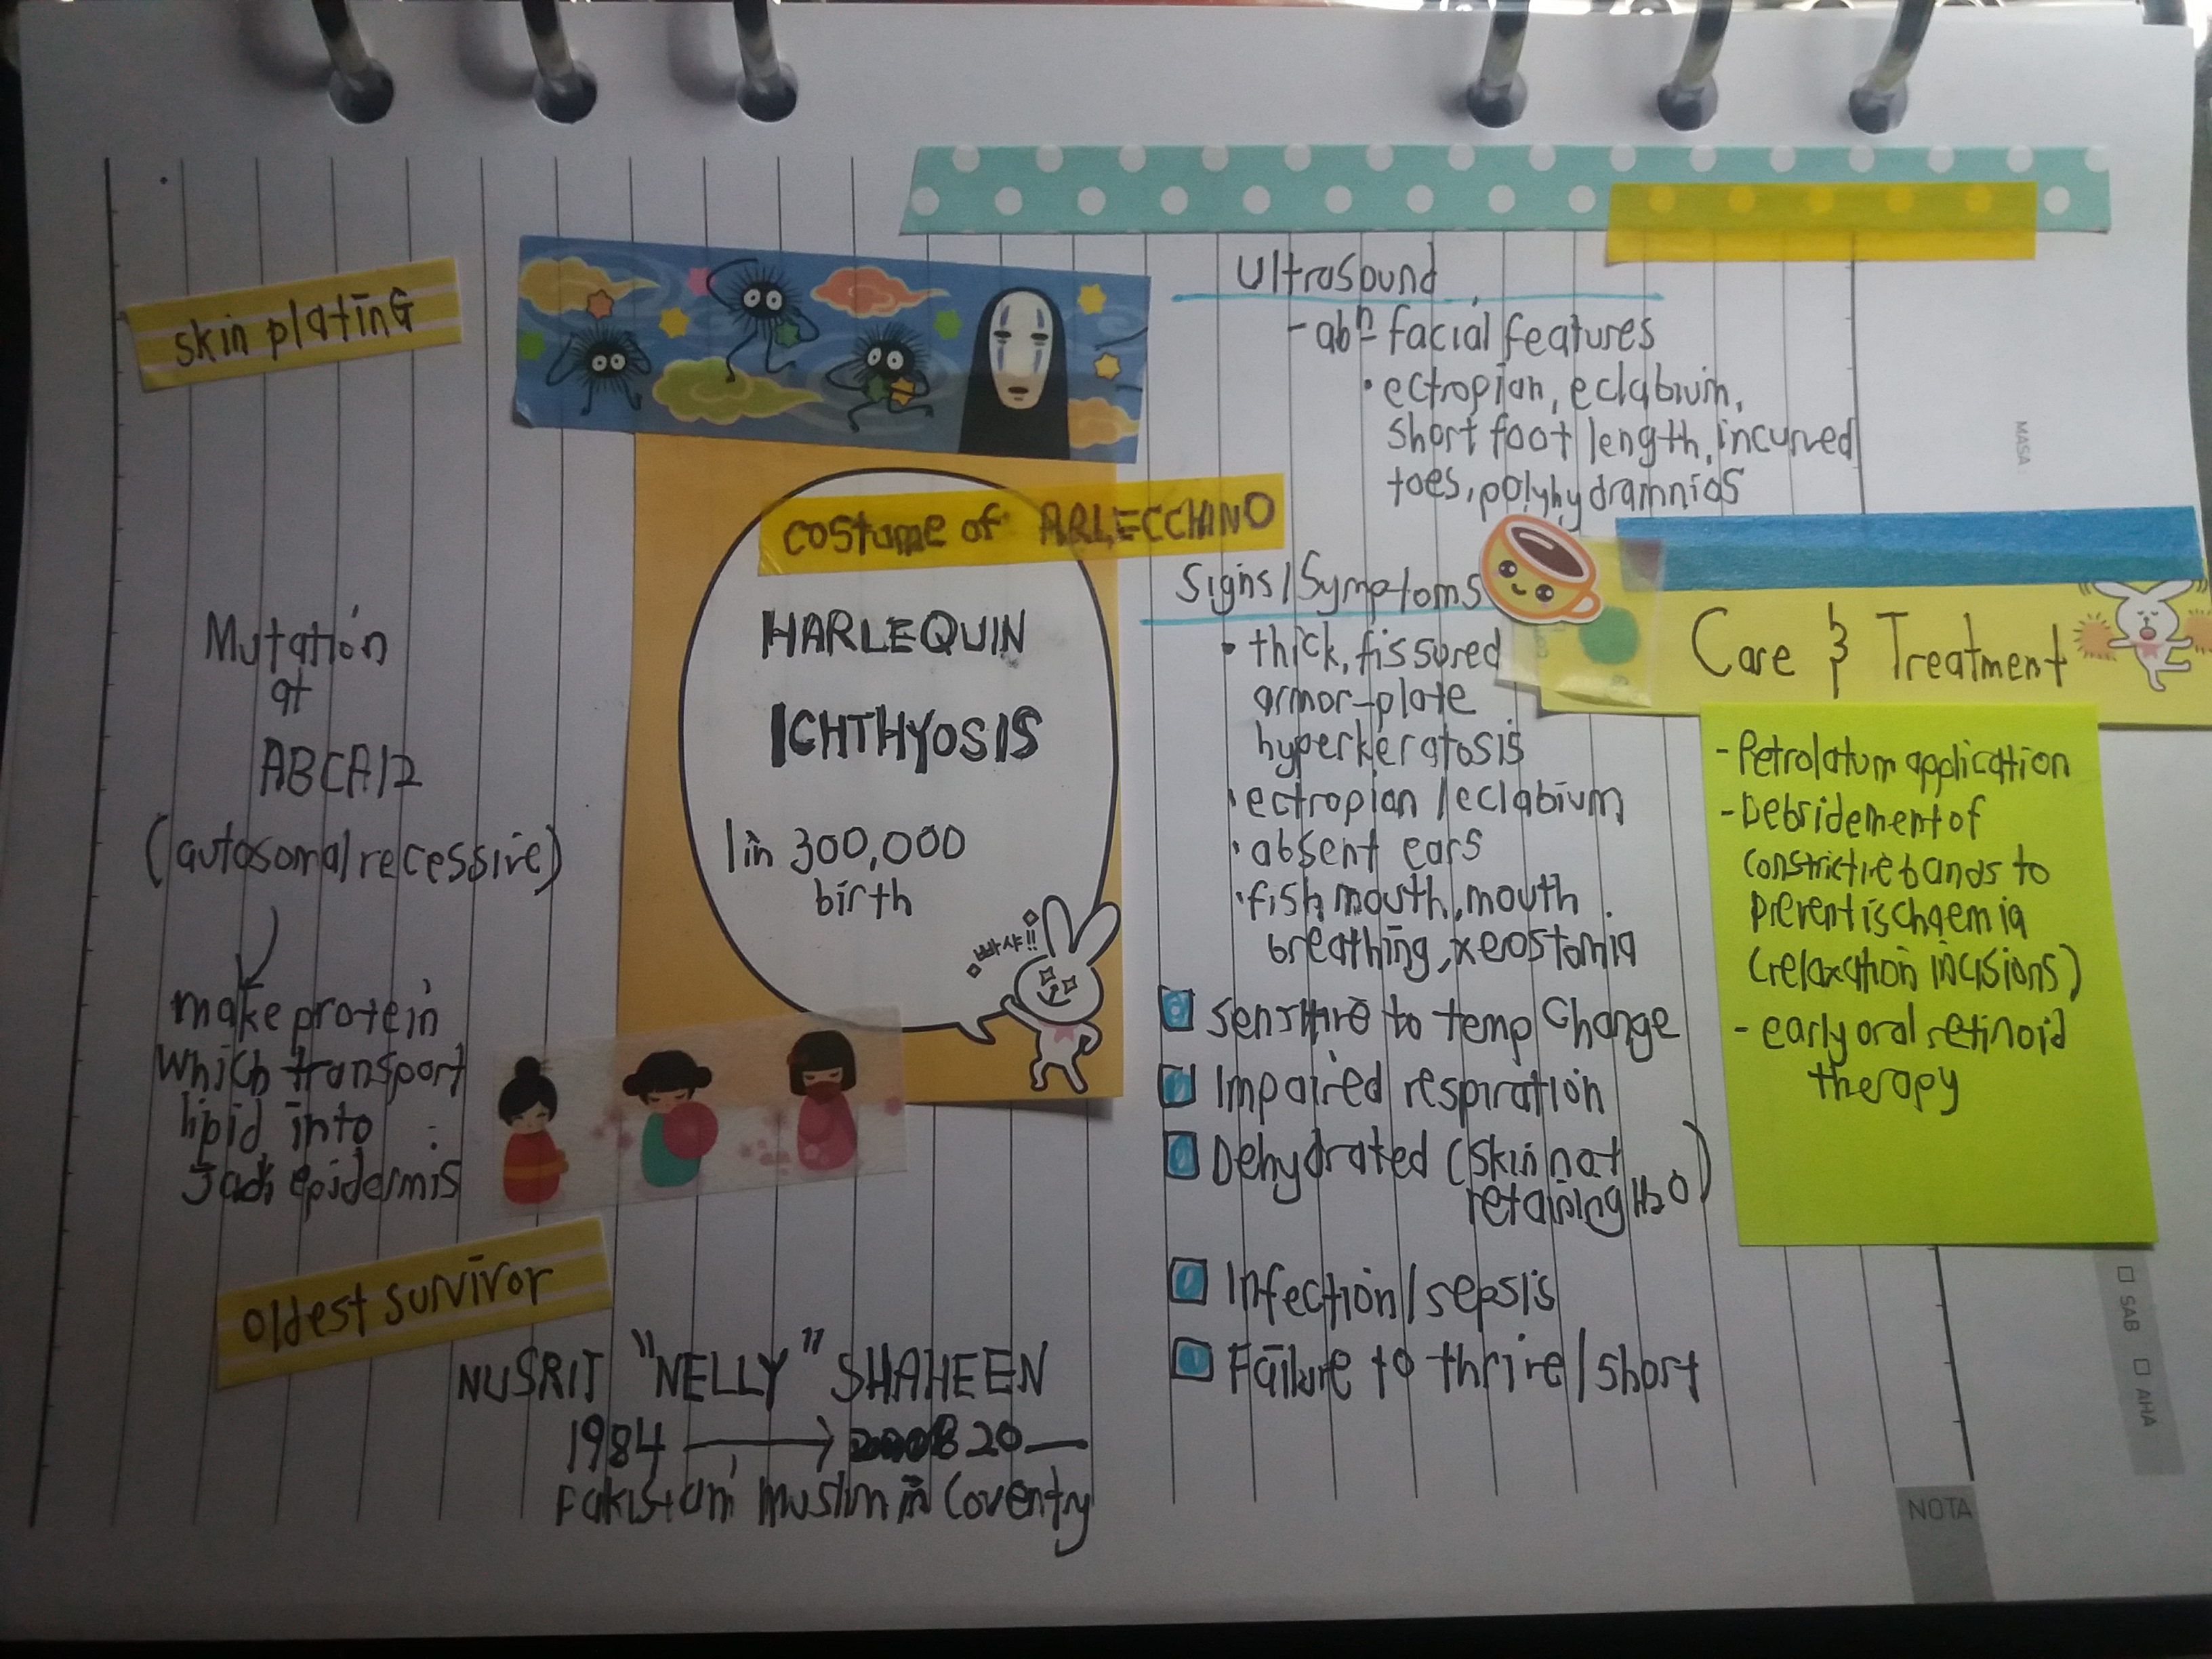 skin plating
Mutation
at
ABCA12
(autosomal recessive)
make protein
which transport
lipid into
epidermis
oldest survivor
NUSRIT "NELLY" SHAHEEN
1984 → 20—
Muslim in Coventry
costume of ARLECCHINO
HARLEQUIN
ICHTHYOSIS
1 in 300,000
birth
빠샤!!
Ultrasound
- abn facial features
• ectropian, eclabium,
short foot length, incurved
toes, polyhydramnios
Signs/Symptoms
• thick, fissured
armor-plate
hyperkeratosis
• ectropian/eclabium
• absent ears
• fish mouth, mouth
breathing, xerostomia
sensitive to temp change
Impaired respiration
Dehydrated (skin not
retaining H2O)
Infection/sepsis
Failure to thrive/short
Care & Treatment
- Petrolatum application
- Debridement of
constrictive bands to
prevent ischaemia
(relaxation incisions)
- early oral retinoid
therapy
MASA
SAB AHA
NOTA